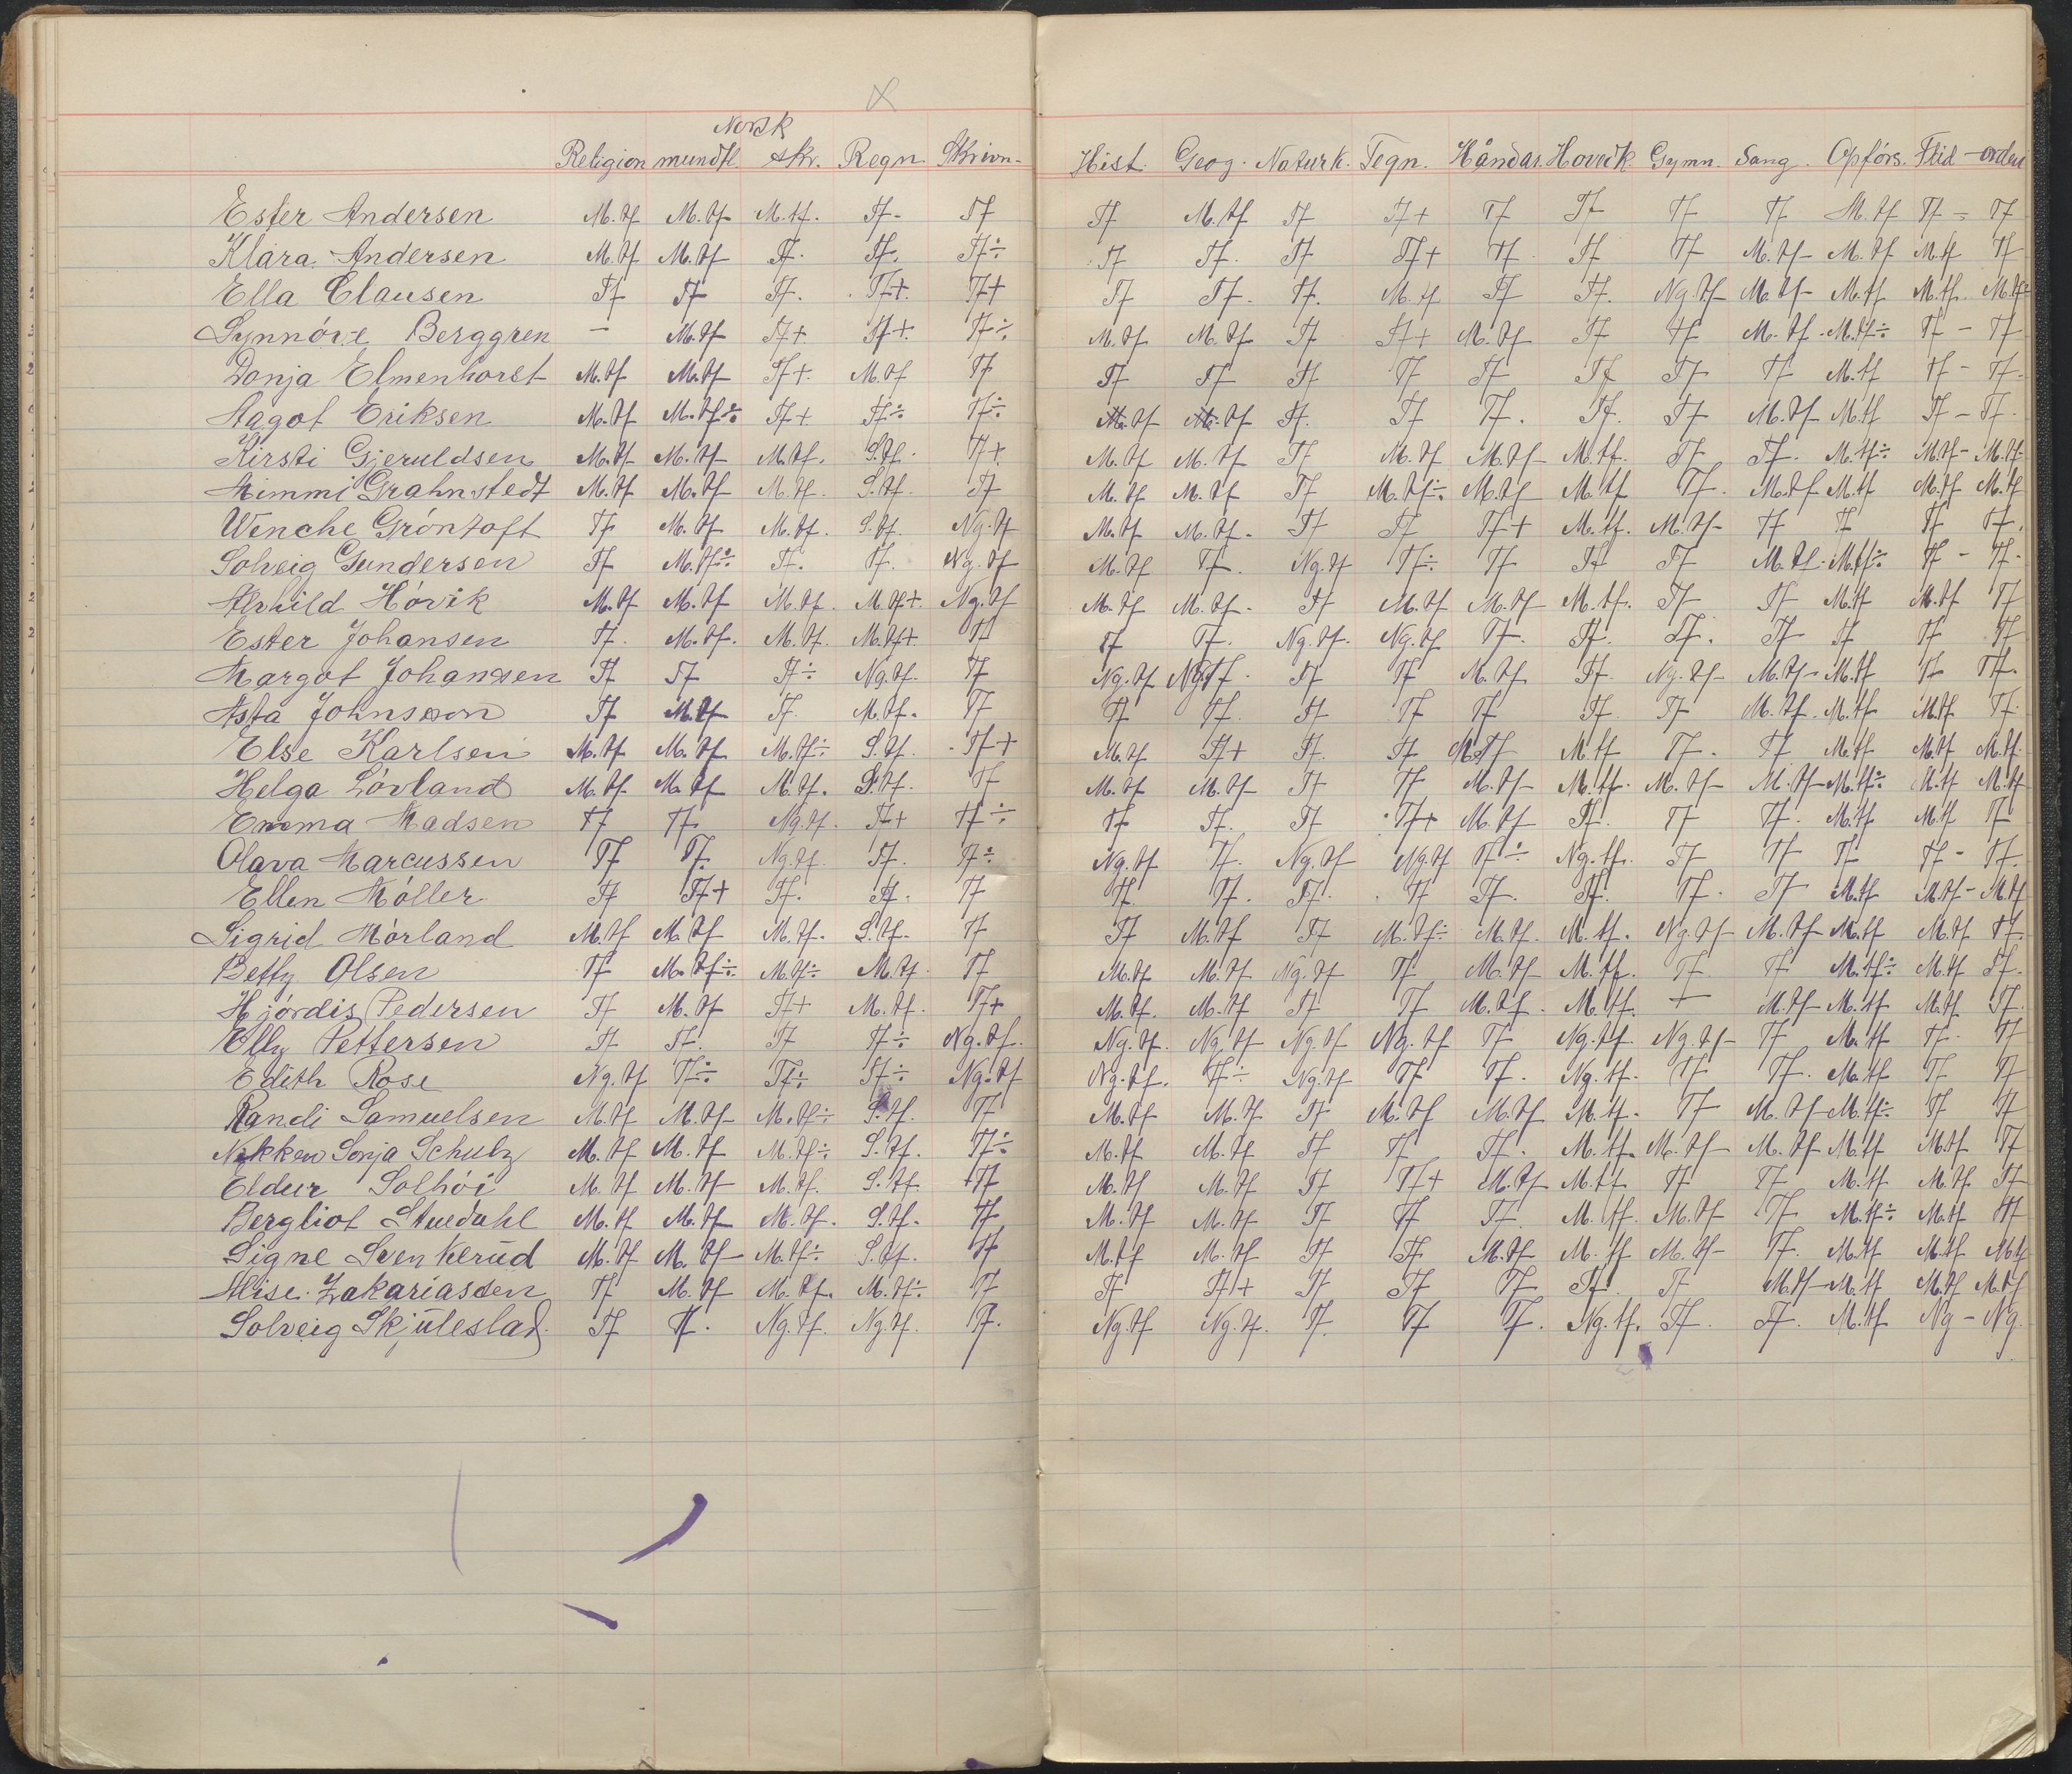 Norsk
Religion mundtl. skr. Regn. Skrivn. Hist. Geog. Naturk. Tegn. Håndar. Hovedk. Gymn. Sang. Opførs. Flid - orden
Ester Andersen M.tf M.tf M.tf. Tf. Tf Tf M.tf Tf Tf+ Tf Tf Tf Tf M.tf Tf - Tf
Klara Andersen M.tf M.tf Tf. Tf. Tf÷ Tf Tf. Tf Tf+ Tf. Tf Tf M.tf M.tf M.tf Tf
Ella Clausen Tf Tf Tf. Tf+. Tf+ Tf Tf. Tf. M.tf Tf Tf. Ng.tf M.tf M.tf M.tf. M.tf
Synnöve Berggren - M.tf Tf+ Tf+. Tf÷ M.tf M.tf Tf Tf+ M.tf Tf Tf M.tf M.tf÷ Tf - Tf
Donja Elmenhorst M.tf M.tf Tf+. M.tf Tf Tf Tf Tf Tf Tf Tf Tf Tf M.tf Tf - Tf
Aagot Eriksen M.tf M.tf÷ Tf+ Tf÷ Tf÷ M.tf M.tf Tf. Tf Tf. Tf. Tf M.tf M.tf Tf - Tf.
Kirsti Gjeruldsen M.tf M.tf M.tf. S.tf. Tf+ M.tf M.tf Tf M.tf M.tf M.tf. Tf Tf. M.tf÷ M.tf - M.tf
Mimmi Grahnstedt M.tf M.tf M.tf. S.tf. Tf M.tf M.tf Tf M.tf÷ M.tf M.tf Tf. M.tf M.tf M.tf M.tf
Wenche Gröntoft Tf M.tf M.tf. S.tf. Ng.tf M.tf M.tf. Tf Tf Tf+ M.tf. M.tf Tf Tf Tf Tf.
Solveig Gundersen Tf M.tf÷ Tf. Tf. Ng.tf M.tf Tf. Ng.tf Tf÷ Tf Tf Tf M.tf. M.tf÷ Tf - Tf.
Alvhild Hövik M.tf M.tf M.tf. M.tf+. Ng.tf M.tf M.tf. Tf M.tf M.tf M.tf. Tf Tf M.tf M.tf Tf
Ester Johansen Tf. M.tf. M.tf. M.tf+. Tf Tf Tf. Ng.tf. Ng.tf Tf. Tf. Tf. Tf Tf Tf Tf
Margot Johansen Tf Tf Tf÷ Ng.tf. Tf Ng.tf Ng.tf. Tf Tf M.tf Tf. Ng.tf M.tf M.tf Tf Tf.
Asta Johnsson Tf M.tf Tf. M.tf. Tf Tf Tf. Tf Tf Tf Tf. Tf M.tf. M.tf M.tf Tf
Else Karlsen M.tf M.tf M.tf÷ S.tf. Tf+ M.tf Tf+ Tf. Tf M.tf M.tf Tf. Tf M.tf M.tf M.tf.
Helga Lövland M.tf M.tf M.tf. S.tf. Tf M.tf M.tf Tf Tf M.tf M.tf. M.tf M.tf M.tf÷ M.tf M.tf
Emma Madsen Tf Tf Ng.tf. Tf+ Tf÷ Tf Tf. Tf Tf+ M.tf Tf. Tf Tf. M.tf M.tf Tf
Olava Marcussen Tf Tf. Ng.tf. Tf. Tf÷ Ng.tf Tf. Ng.tf Ng.tf Tf÷ Ng.tf. Tf Tf Tf Tf - Tf.
Ellen Möller Tf Tf+ Tf. Tf. Tf Tf. Tf. Tf. Tf Tf. Tf. Tf. Tf M.tf M.tf - M.tf
Sigrid Mörland M.tf M.tf M.tf. S.tf. Tf Tf M.tf Tf M.tf÷ M.tf. M.tf. Ng.tf M.tf M.tf M.tf Tf
Betty Olsen Tf M.tf÷ M.tf÷ M.tf. Tf M.tf M.tf Ng.tf Tf M.tf M.tf. Tf Tf M.tf÷ M.tf Tf.
Hjördis Pedersen Tf M.tf Tf+ M.tf. Tf+ M.tf. M.tf Tf Tf M.tf. M.tf. - M.tf M.tf M.tf Tf
Elly Pettersen Tf Tf. Tf Tf÷ Ng.tf. Ng.tf. Ng.tf Ng.tf Ng.tf Tf Ng.tf. Ng.tf Tf M.tf Tf Tf
Edith Rose Ng.tf Tf÷ Tf÷ Tf÷ Ng.tf Ng.tf. Tf÷ Ng.tf Tf Tf. Ng.tf. Tf Tf. M.tf Tf Tf
Randi Samuelsen M.tf M.tf M.tf÷ S.tf. Tf M.tf M.tf Tf M.tf M.tf M.tf. Tf M.tf M.tf÷ Tf Tf
Nikken Sonja Schulz M.tf M.tf M.tf÷ S.tf. Tf÷ M.tf M.tf Tf Tf Tf. M.tf. M.tf M.tf M.tf M.tf Tf
Eldur Solhöi M.tf M.tf M.tf. S.tf. Tf M.tf M.tf Tf Tf+ M.tf M.tf Tf Tf M.tf M.tf. Tf
Bergliot Stuedahl M.tf M.tf M.tf. S.tf. Tf M.tf M.tf Tf Tf Tf. M.tf. M.tf Tf M.tf÷ M.tf Tf
Signe Svenkerud M.tf M.tf M.tf÷ S.tf. Tf M.tf M.tf Tf Tf M.tf M.tf M.tf Tf. M.tf M.tf M.tf
Alise Zakariassen Tf M.tf M.tf. M.tf÷ Tf Tf Tf+ Tf Tf Tf Tf. Tf M.tf M.tf M.tf M.tf
Solveig Skjuleslad. Tf Tf. Ng.tf. Ng.tf. Tf. Ng.tf Ng.tf. Tf Tf Tf. Ng.tf. Tf. Tf. M.tf Ng - Ng.